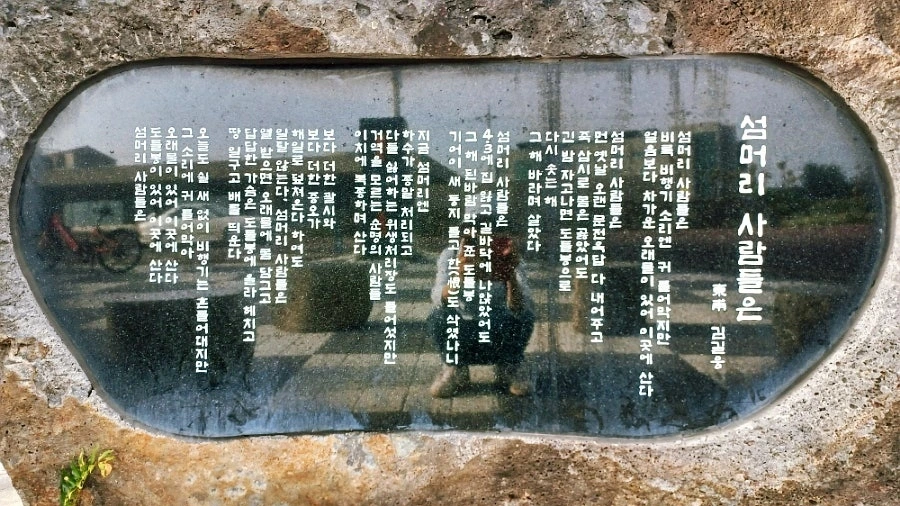 섬머리 사람들은
東崇 김길웅
섬머리 사람들은
비록 비행기 소리엔 귀 틀어막지만
얼음보다 차가운 오래물이 있어 이곳에 산다
섬머리 사람들은
먼 옛날 오랜 문전옥답 다 내어주고
죽 삼시로 몸은 곯았어도
긴 밤 자고나면 도들봉으로
다시 솟는 해
그 해 바라며 살았다
섬머리 사람들은
4·3에 집 잃고 길바닥에 나앉았어도
그 해 된바람 막아 준 도들봉
기어이 새 둥지 틀고 한(恨)도 삭였나니
지금 섬머리엔
하수가 종말 처리되고
다들 싫어하는 위생처리장도 들어섰지만
거역을 모르는 순명의 사람들
이치에 복종하며 산다
보다 더한 괄시와
보다 더한 증오가
해일로 덮쳐온다 하여도
알달 않는다. 섬머리 사람들은
열 받으면 오래물에 몸 담그고
답답한 가슴은 도들봉에 올라 헤치고
땅 일구고 배를 띄운다
오늘도 쉴 새 없이 비행기는 흔들어대지만
그 소리에 귀 틀어막아
오래물이 있어 이곳에 산다
도들봉이 있어 이곳에 산다
섬머리 사람들은